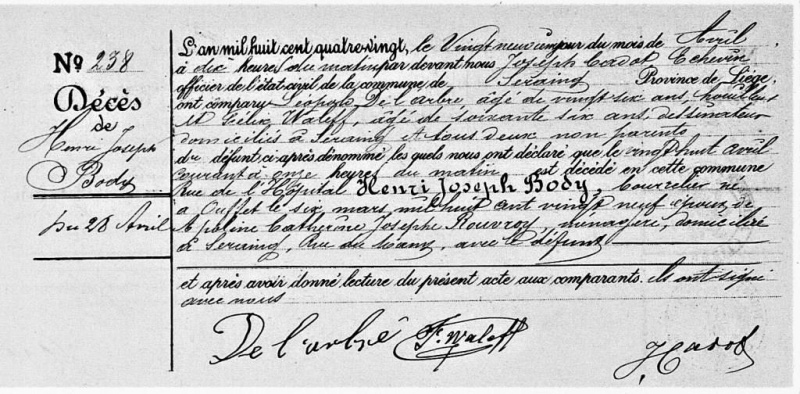 No 238
Décès
de
Henri Joseph
Body
Du 28 Avril
L'an mil huit cent quatre-vingt, le Vingt neuvième jour du mois de Avril
à dix heures du matin par devant nous Joseph Cadot Echevin
officier de l'état civil de la commune de Seraing Province de Liège,
ont comparu Léopold De l'arbre, âgé de vingt six ans, houilleur
et Félix Waleff, âgé de soixante six ans, dessinateur
domiciliés à Seraing et tous deux non parents
du défunt ci-après dénommé, les quels nous ont déclaré que le vingt huit avril
courant à onze heures du matin est décédé en cette commune
Rue de l'Hôpital Henri Joseph Body, bourrelier né
à Ouffet le six mars mil huit cent vingt neuf époux de
Catherine Joseph Rouvroy, ménagère, domiciliée
à Seraing, Rue du avec le défunt
et après avoir donné lecture du présent acte aux comparants. ils ont signé
avec nous
De l'arbre F. Waleff
J Cadot